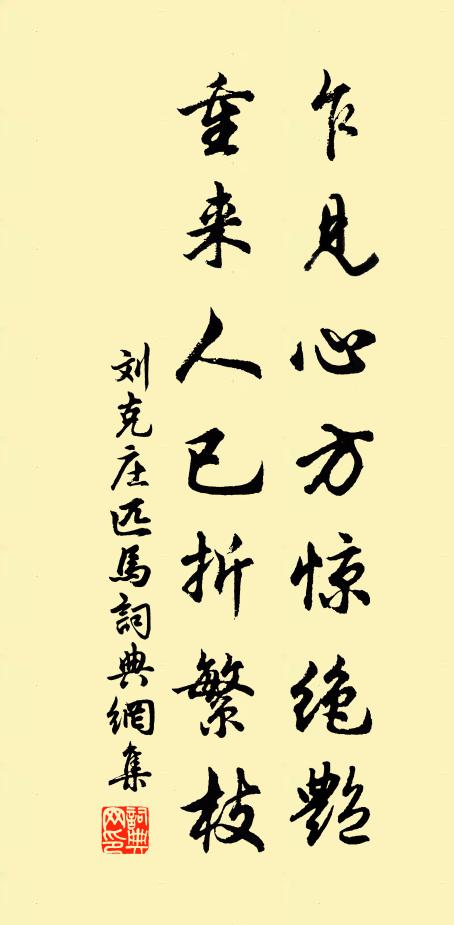 乍见心方惊绝艳
重来人已折繁枝
刘克庄匹馬詞典網集
詞典
网印